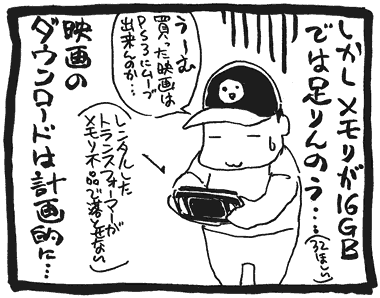 しかしメモリが16GB
では足りんのう…
(32ほしい)
うーむ
買った映画は
PS3にムーブ
出来んのか…
(レンタルした
トランスフォーマーが
メモリ不品で落とせない)
映画の
ダウンロードは計画的に…